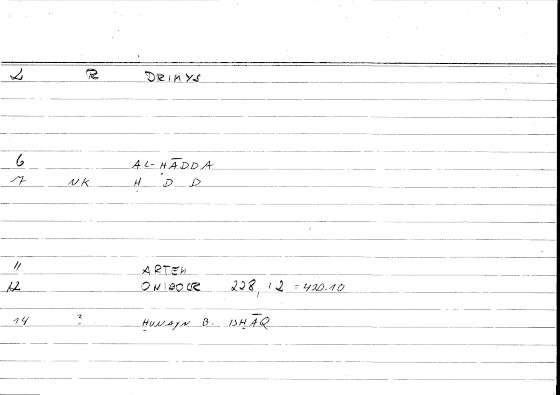 L R DRIMYS
6 AL-ḤĀDDA
7 NK Ḥ D D
11 ARTEM
12 228, 12 = 420.10
14 : ḤUNAYN B. ISḤĀQ